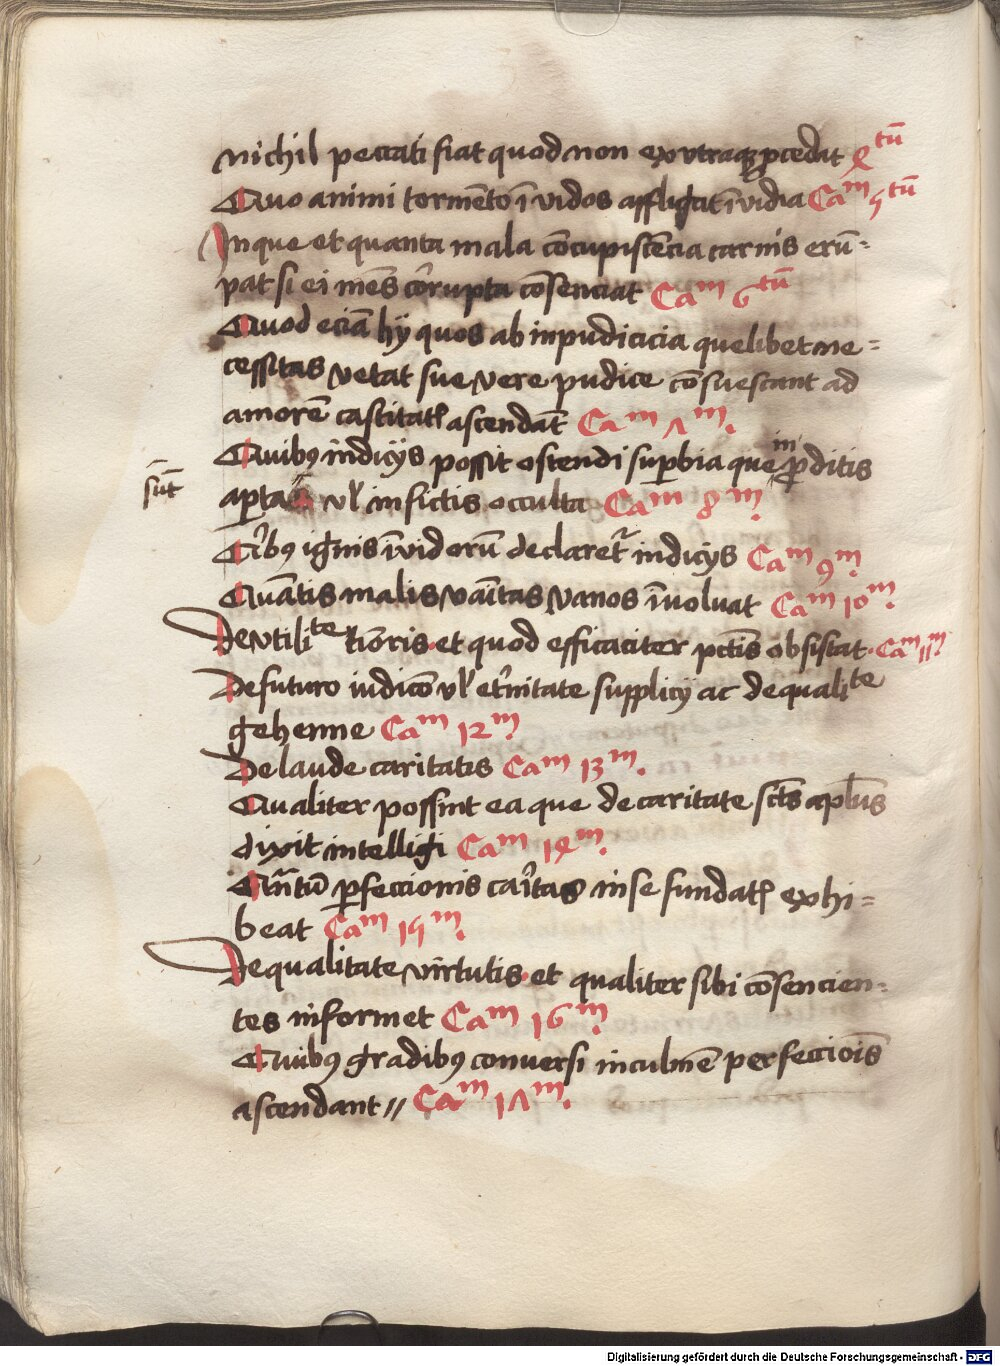 nichil peccati fiat quod non ex utraqꝫ ꝓcedat 4tū
Quo animi tormēto īvidos affligat īvidia Cam 5tū
Inque et quanta mala cōcupiscēcia carnis erū-
pat si ei mēs corrupta cōsenciat Cam 6tū
Quod eciā hij quos ab inpudicicia quelibet ne-
cessitas vetat sue vere pudice cōsuescant ad
amorē castitatꝭ ascendāt Cam 7m.
Quibꝰ indicijs possit ostendi suꝑbia que in ꝓditis
sūt
aꝑta vl in fictis occulta Cam 8m.
Qibꝰ ignis īvidorū declaretr indicijs Cam 9m.
Quātis malis vaītas vanos īvoluat Cam 10m.
De utilite tiōris et quod efficaciter pctīs obsistat. Cam 11m.
De futuro iudicō vl etnitate supplicij ac de qualite
gehenne Cam 12m.
De laude caritatis Cam 13m.
Qualiter possint ea que de caritate scts aplus
dixit intelligi Cam 14m.
Qntū ꝑfeccionis caitas in se fundatꝭ exhi-
beat Cam 15m.
De qualitate virtutis et qualiter sibi cōsencien-
tes informet Cam 16m.
Quibꝰ gradibꝰ conversi in culmē perfeccioīs
ascendant // Cam 17m.
Digitalisierung gefördert durch die Deutsche Forschungsgemeinschaft - DFG